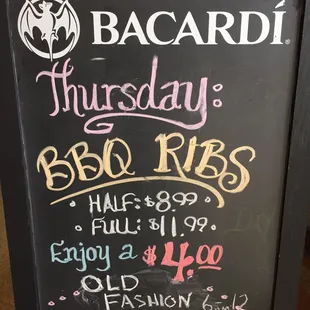 BACARDÍ®
Thursday:
BBQ RIBS
• HALF: $8.99 •
• FULL: $11.99 •
Enjoy a $4.00
OLD
FASHION